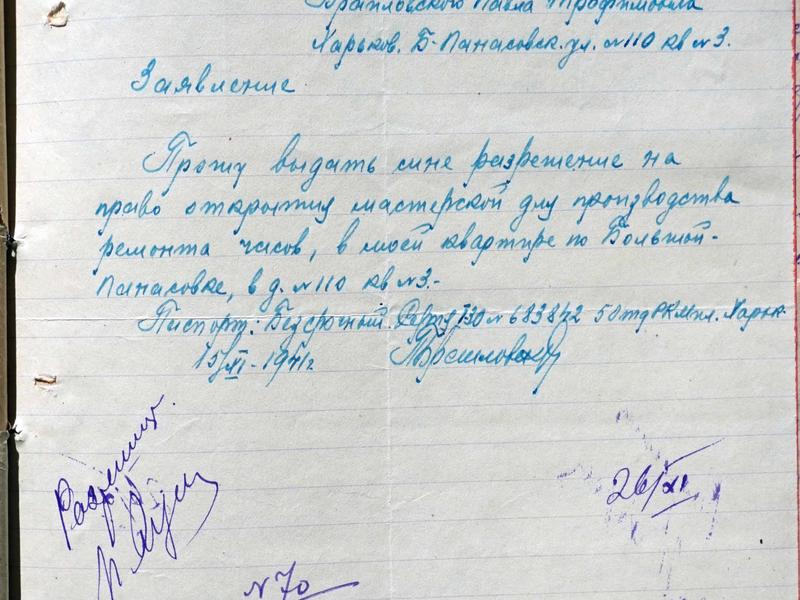 Павла Трофимовича
Харьков. Б-Панасовск. ул. №110 кв №3.
Заявление
Прошу выдать мне разрешение на
право открытия мастерской для производства
ремонта часов, в моей квартире по Большой-
Панасовке, в д. №110 кв №3.-
Паспорт: Безсрочный. № 683872 5 отд РКМ гл. Харьк.
15/XI-1941г
26/XI
N 70